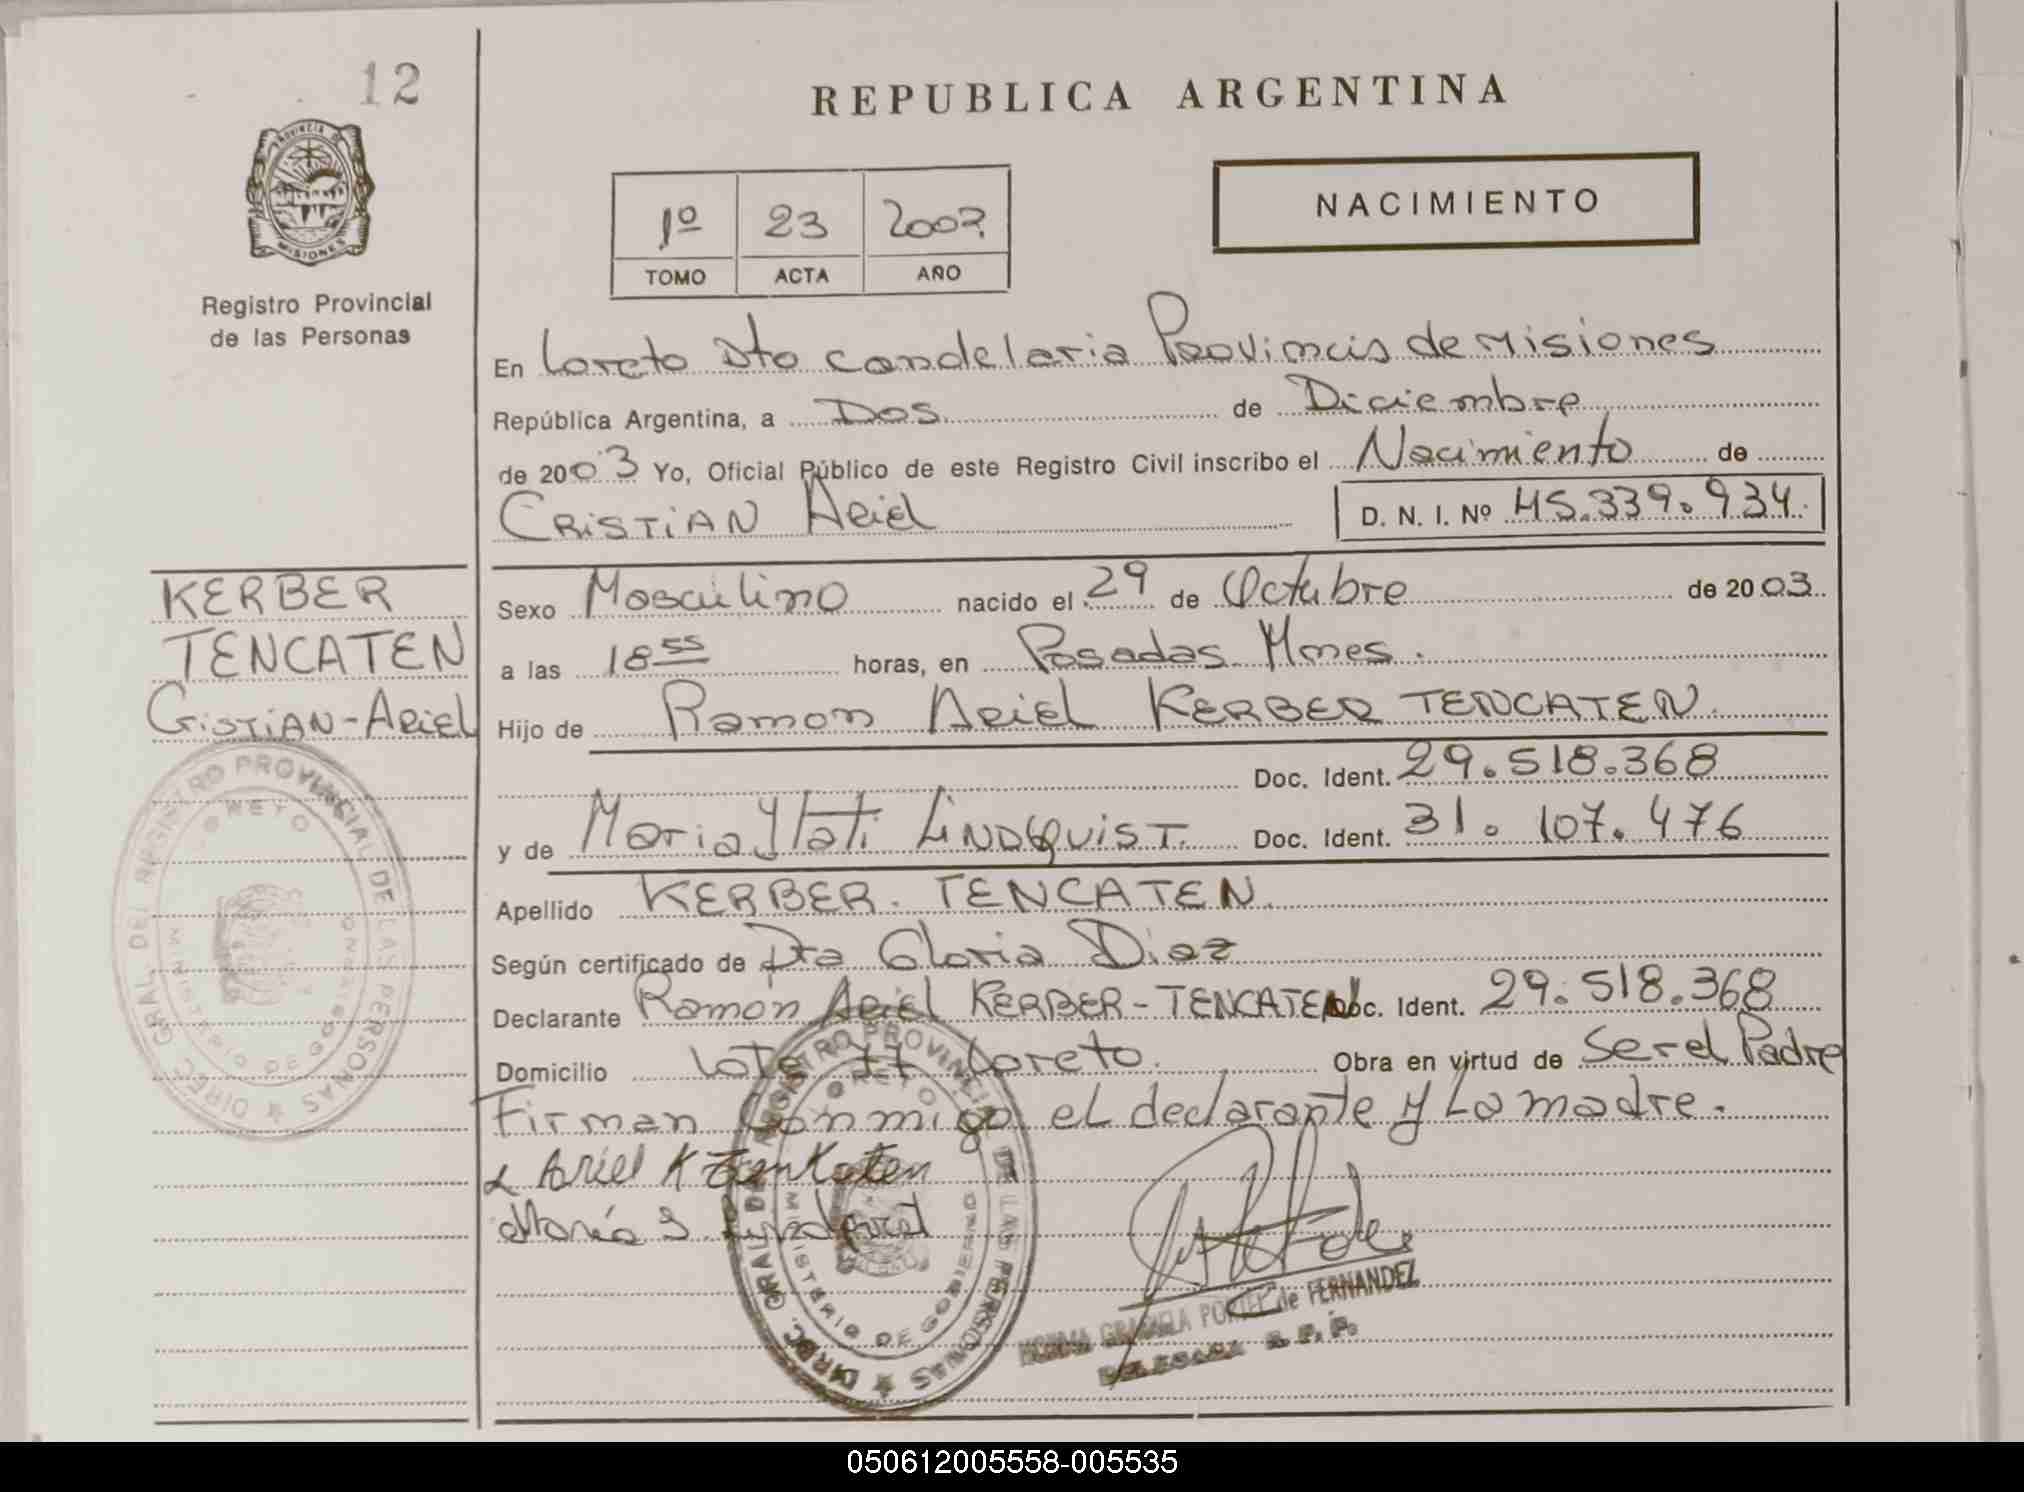 12
PROVINCIA DE
MISIONES
Registro Provincial
de las Personas
KERBER
TENCATEN
CRISTIAN-ARIEL
DIREC. GRAL DEL REGISTRO PROVINCIAL DE LAS PERSONAS
MINISTERIO DE GOBIERNO
REPUBLICA ARGENTINA
1º 23 2003
TOMO ACTA AÑO
NACIMIENTO
En Loreto Dto Candelaria Provincia de Misiones
República Argentina, a Dos de Diciembre
de 2003 Yo, Oficial Público de este Registro Civil inscribo el Nacimiento de
CRISTIAN Ariel D. N. I. Nº 45.339.934.
Sexo Masculino nacido el 29 de Octubre de 2003
a las 18 55 horas, en Posadas Mnes.
Hijo de Ramon Ariel KERBER TENCATEN.
Doc. Ident. 29.518.368
y de Maria Ytati LINDQUIST. Doc. Ident. 31.107.476
Apellido KERBER. TENCATEN.
Según certificado de Dra Gloria Diaz
Declarante Ramon Ariel KERBER-TENCATEN Doc. Ident. 29.518.368
Domicilio Lote 11 Loreto. Obra en virtud de Ser el Padre
Firman Conmigo el declarante y La madre.
Ariel K Tenkaten
María I. Lindquist
DIREC. GRAL DEL REGISTRO PROVINCIAL DE LAS PERSONAS
MINISTERIO DE GOBIERNO
NORMA GRACIELA PORTEL de FERNANDEZ
DELEGADA R. P. P.
050612005558-005535